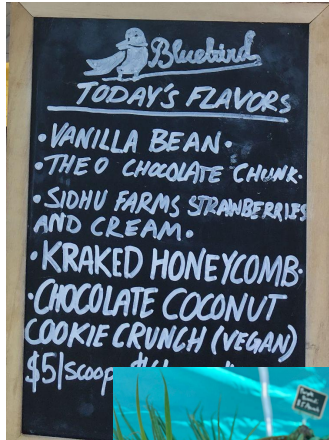 Bluebird
TODAY'S FLAVORS
• VANILLA BEAN •
• THEO CHOCOLATE CHUNK •
• SIDHU FARMS STRAWBERRIES
AND CREAM •
• KRAKED HONEYCOMB •
• CHOCOLATE COCONUT
COOKIE CRUNCH (VEGAN)
$5/scoop